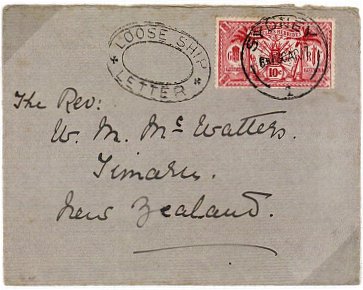 LOOSE SHIP
LETTER
SYDNEY
10c
The Rev:
W. M. McWatters.
Timaru.
New Zealand.